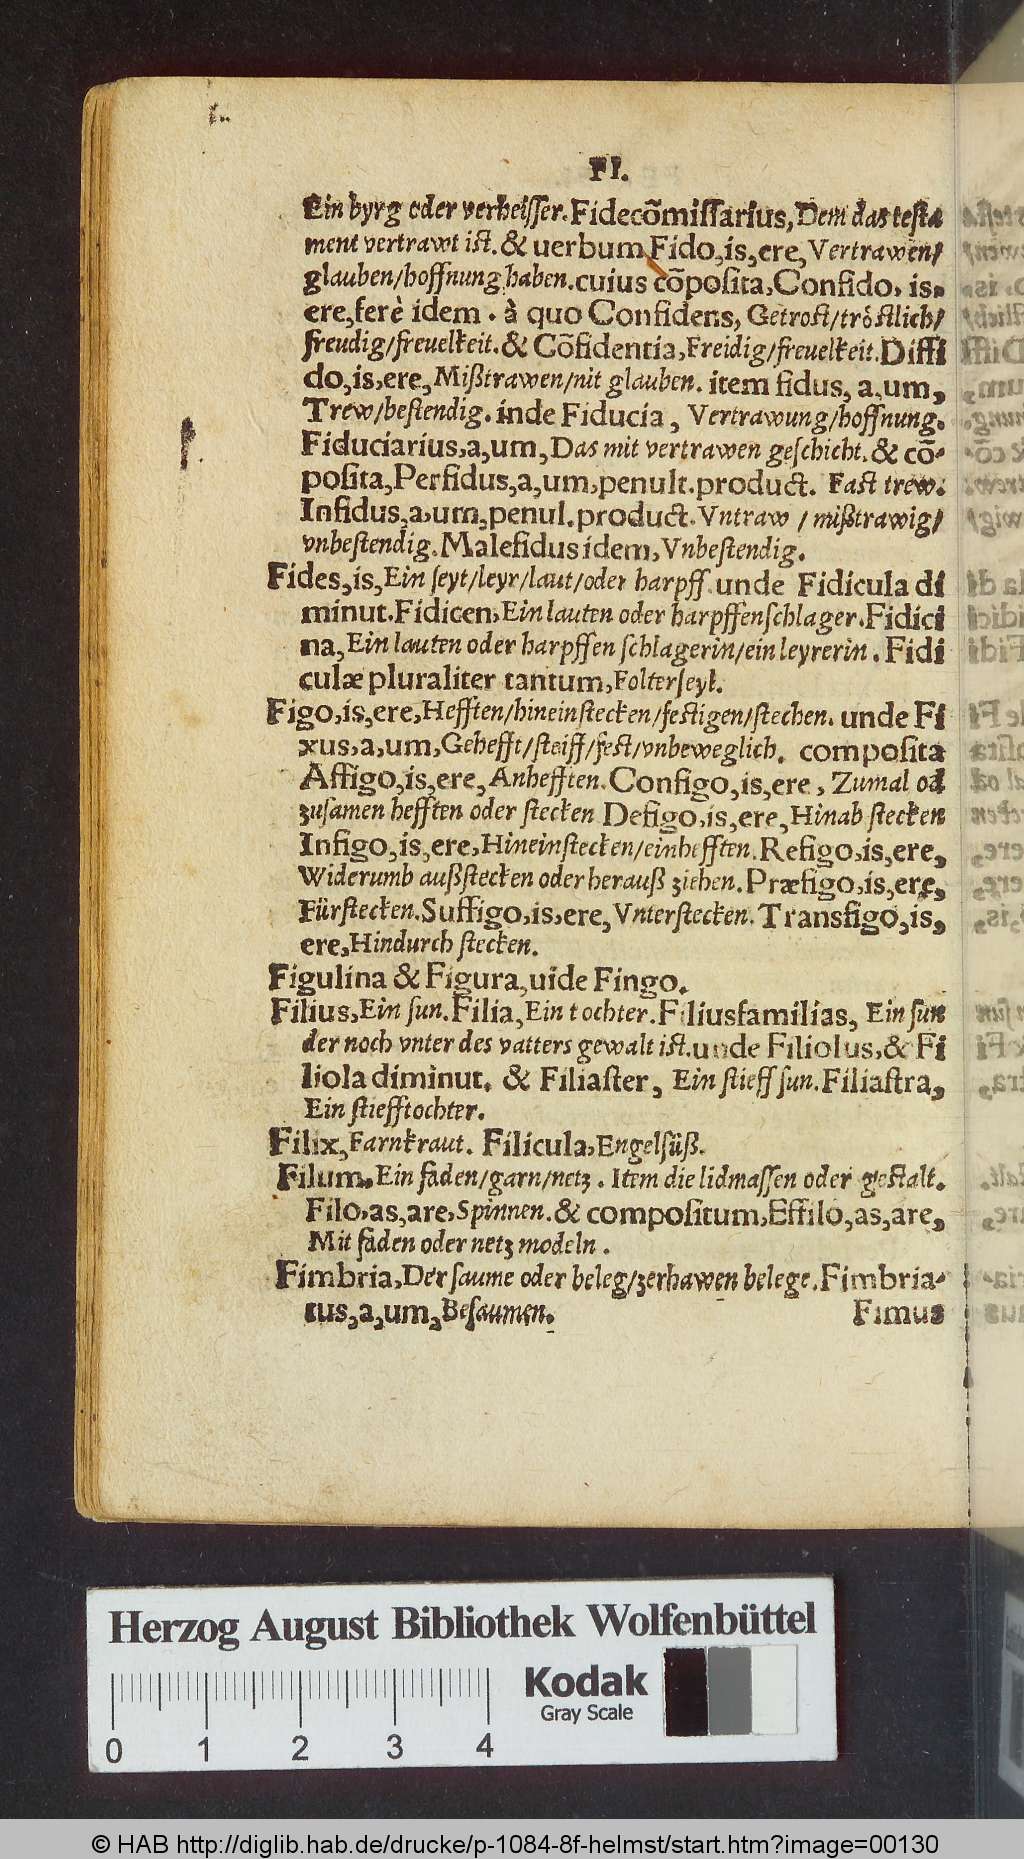 FI.
Ein byrg oder verheisser. Fidecõmissarius, Dem das testa
ment vertrawt ist. & uerbum Fido, is, ere, Vertrawen/
glauben/hoffnung haben. cuius cõposita, Confido, is,
ere, ferè idem. à quo Confidens, Getrost/tröstlich/
freudig/freuelkeit. & Cõfidentia, Freidig/freuelkeit. Diffi
do, is, ere, Mißtrawen/nit glauben. item fidus, a, um,
Trew/bestendig. inde Fiducia, Vertrawung/hoffnung.
Fiduciarius, a, um, Das mit vertrawen geschicht. & cõ-
posita, Perfidus, a, um, penult. product. Fast trew.
Infidus, a, um, penul. product. Vntraw / mißtrawig/
vnbestendig. Malefidus idem, Vnbestendig.
Fides, is, Ein seyt/leyr/laut/oder harpff. unde Fidicula di
minut. Fidicen, Ein lauten oder harpffenschlager. Fidici
na, Ein lauten oder harpffen schlagerin/ein leyrerin. Fidi
culæ pluraliter tantum, Folterseyl.
Figo, is, ere, Hefften/hineinstecken/festigen/stechen. unde Fi
xus, a, um, Gehefft/steiff/fest/vnbeweglich. composita
Affigo, is, ere, Anhefften. Configo, is, ere, Zumal od
zusamen hefften oder stecken Defigo, is, ere, Hinab stecken
Infigo, is, ere, Hineinstecken/einhefften. Refigo, is, ere,
Widerumb außstecken oder herauß ziehen. Præfigo, is, ere,
Fürstecken. Suffigo, is, ere, Vnterstecken. Transfigo, is,
ere, Hindurch stecken.
Figulina & Figura, uide Fingo.
Filius, Ein sun. Filia, Ein tochter. Filiusfamilias, Ein sun
der noch vnter des vatters gewalt ist. unde Filiolus, & Fi
liola diminut. & Filiaster, Ein stieff sun. Filiastra,
Ein stiefftochter.
Filix, Farnkraut. Filicula, Engelsüß.
Filum, Ein faden/garn/netz. Item die lidmassen oder gestalt.
Filo, as, are, Spinnen. & compositum, Effilo, as, are,
Mit faden oder netz modeln.
Fimbria, Der saume oder beleg/zerhawen belege. Fimbria-
tus, a, um, Besaumen. Fimus
Herzog August Bibliothek Wolfenbüttel
Kodak
Gray Scale
0 1 2 3 4
© HAB http://diglib.hab.de/drucke/p-1084-8f-helmst/start.htm?image=00130